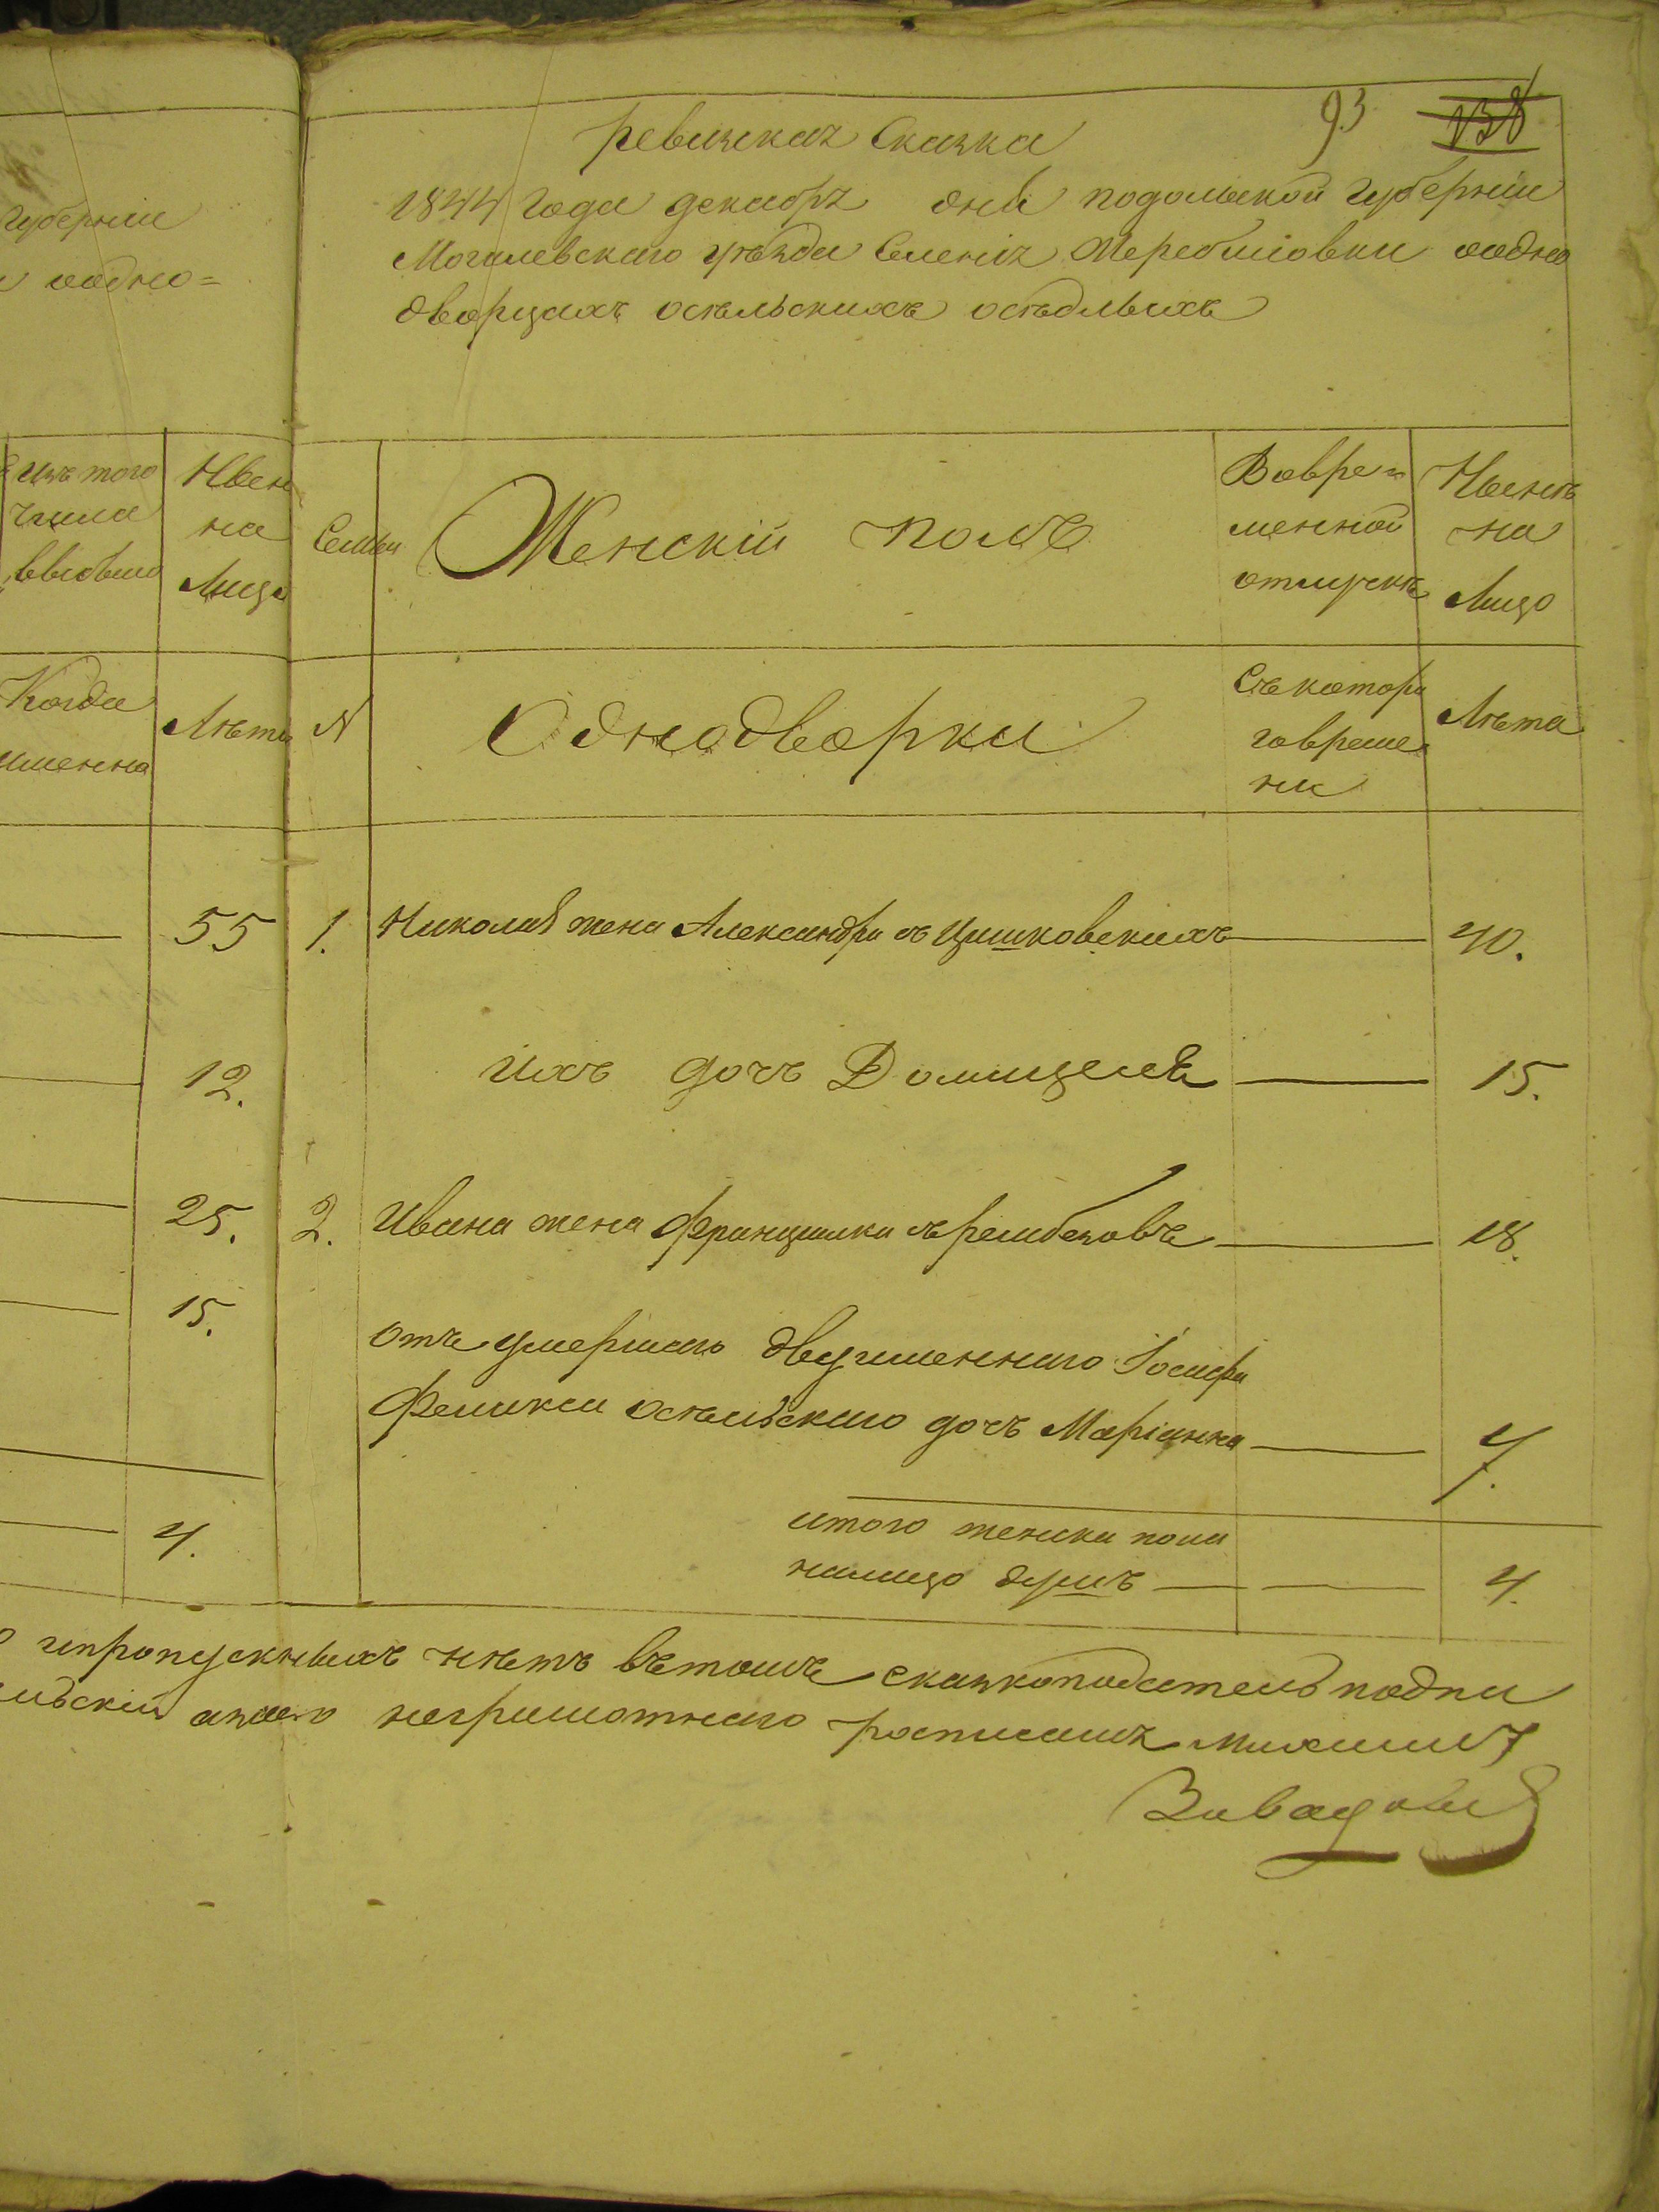 93 138
ревизская Сказка
1844 года декабря дня подольской губерніи
Могилевскаго уѣзда Селенія Жеребиловки ообдно
дворцахъ осѣльскихъ осѣдлыхъ
губерніи
ообдно=
изъ того
числа
выбыло
Ныен
на
Лицо
Семьи
Женскій полъ
Вовре=
менной
отлучкѣ
Ныенѣ
на
Лицо
Когда
именно
Лѣта
N
Однодворки
Съ котора
говреме
ни
Лѣта
55 1. Николая жена Александра съ Цишковскихъ 40.
12. ихъ дочъ Домицеля 15.
25. 2. Ивана жена Францишка съ рембезовъ 18.
15.
отъ умершаго двуименнаго Іосифа
Феликса осѣльскаго дочъ Маріанна 7.
итого женска пола
4. налицо душъ 4.
ипропускныхъ нѣтъ вътомъ сказкоподатель подпи
ельскій азанего неграмотнаго росписался Михаилъ
Завадскій